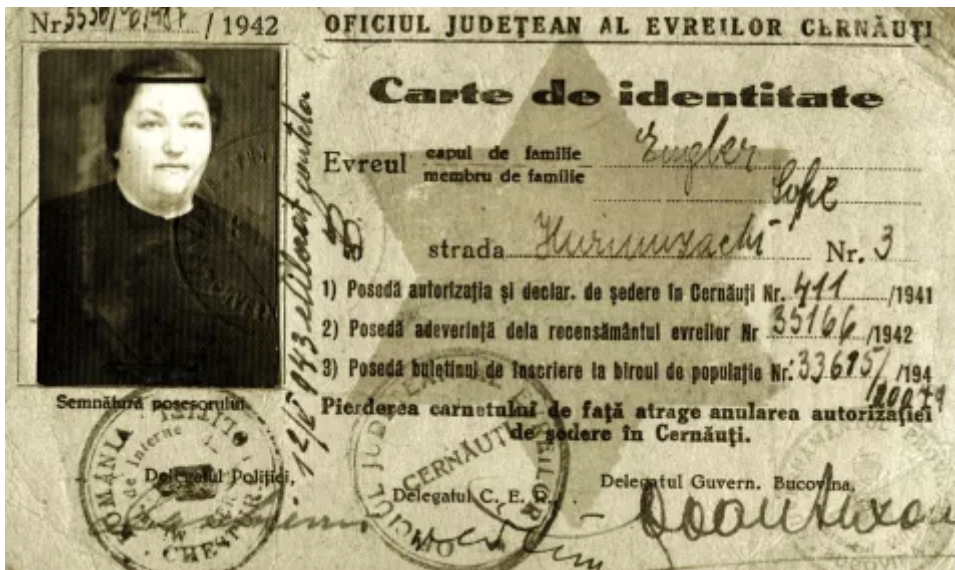 Nr. / 1942
OFICIUL JUDEȚEAN AL EVREILOR CERNĂUȚI
Carte de identitate
Evreul capul de familie Engler
membru de familie
Sofie
strada Hurmuzachi Nr. 3
1) Posedă autorizația și declar. de ședere în Cernăuți Nr. 411 /1941
2) Posedă adeverință dela recensământul evreilor Nr 35166 /1942
3) Posedă buletinul de înscriere la biroul de populație Nr. 33615/ /194
Pierderea carnetului de față atrage anularea autorizației
de ședere în Cernăuți.
Semnătura posesorului
Delegatul Poliției,
Delegatul C. E. R.
Delegatul Guvern. Bucovina,
1943
ROMÂNIA
CHESTUR
OFICIUL JUDEȚEAN AL EVREILOR
CERNĂUȚI